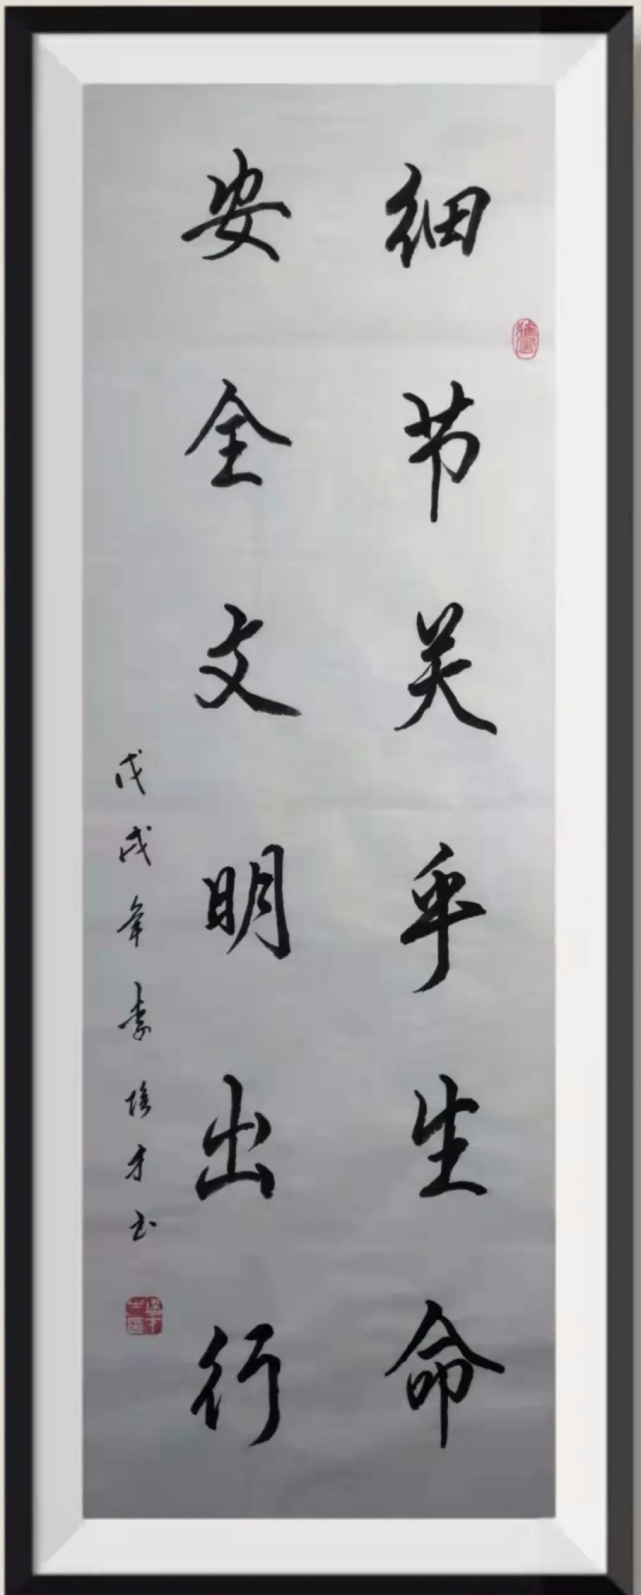 细节关乎生命
安全文明出行
戊戌年李培才书